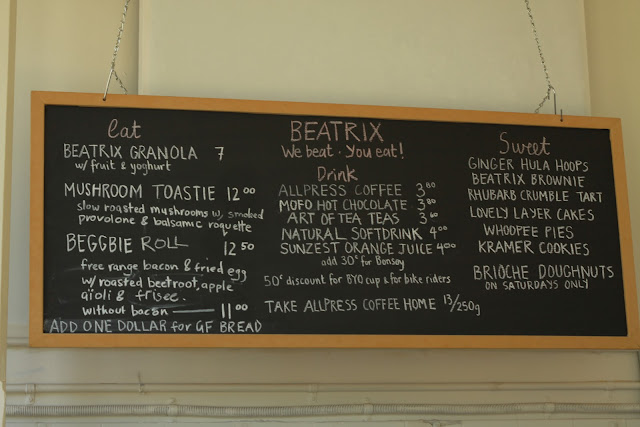 eat
BEATRIX GRANOLA 7
w/ fruit & yoghurt
MUSHROOM TOASTIE 12 00
slow roasted mushrooms w/ smoked
provolone & balsamic roquette
BEGGBIE ROLL 12 50
free range bacon & fried egg
w/ roasted beetroot, apple
aïoli & frisée.
without bacon — 11 00
ADD ONE DOLLAR for GF BREAD
BEATRIX
We beat. You eat!
Drink
ALLPRESS COFFEE 3 80
MOFO HOT CHOCOLATE 3 80
ART OF TEA TEAS 3 60
NATURAL SOFTDRINK 4 00
SUNZEST ORANGE JUICE 4 00
add 30c for Bonsoy
50c discount for BYO cup & for bike riders
TAKE ALLPRESS COFFEE HOME 13/250g
Sweet
GINGER HULA HOOPS
BEATRIX BROWNIE
RHUBARB CRUMBLE TART
LOVELY LAYER CAKES
WHOOPEE PIES
KRAMER COOKIES
BRIOCHE DOUGHNUTS
ON SATURDAYS ONLY